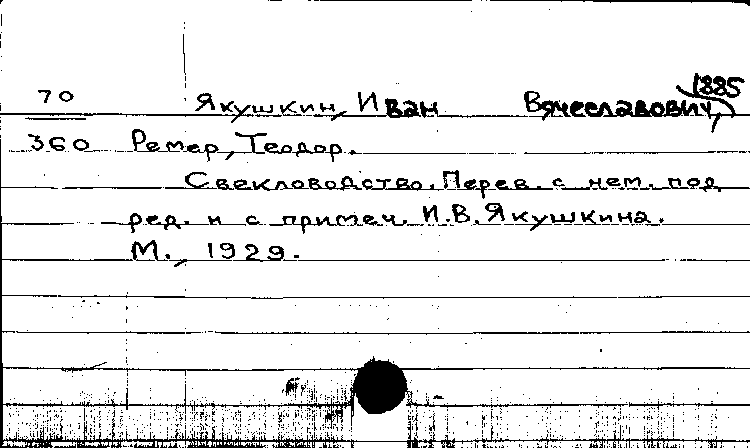 1885
70 Якушкин, Иван Вячеславович,
360 Ремер, Теодор.
Свекловодство. Перев. с нем. под
ред. и с примеч. И.В. Якушкина.
М., 1929.